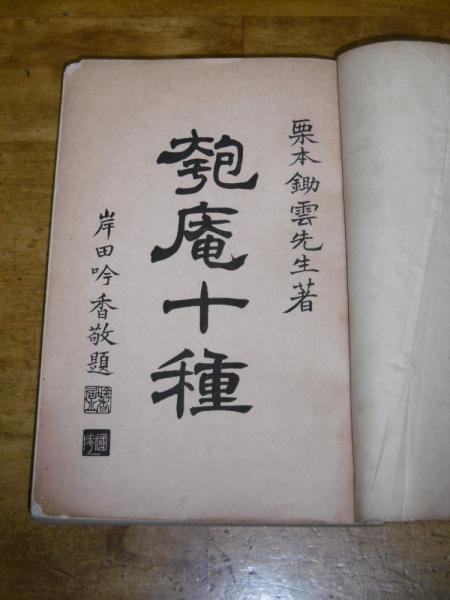 栗本鋤雲先生著
匏庵十種
岸田吟香敬題